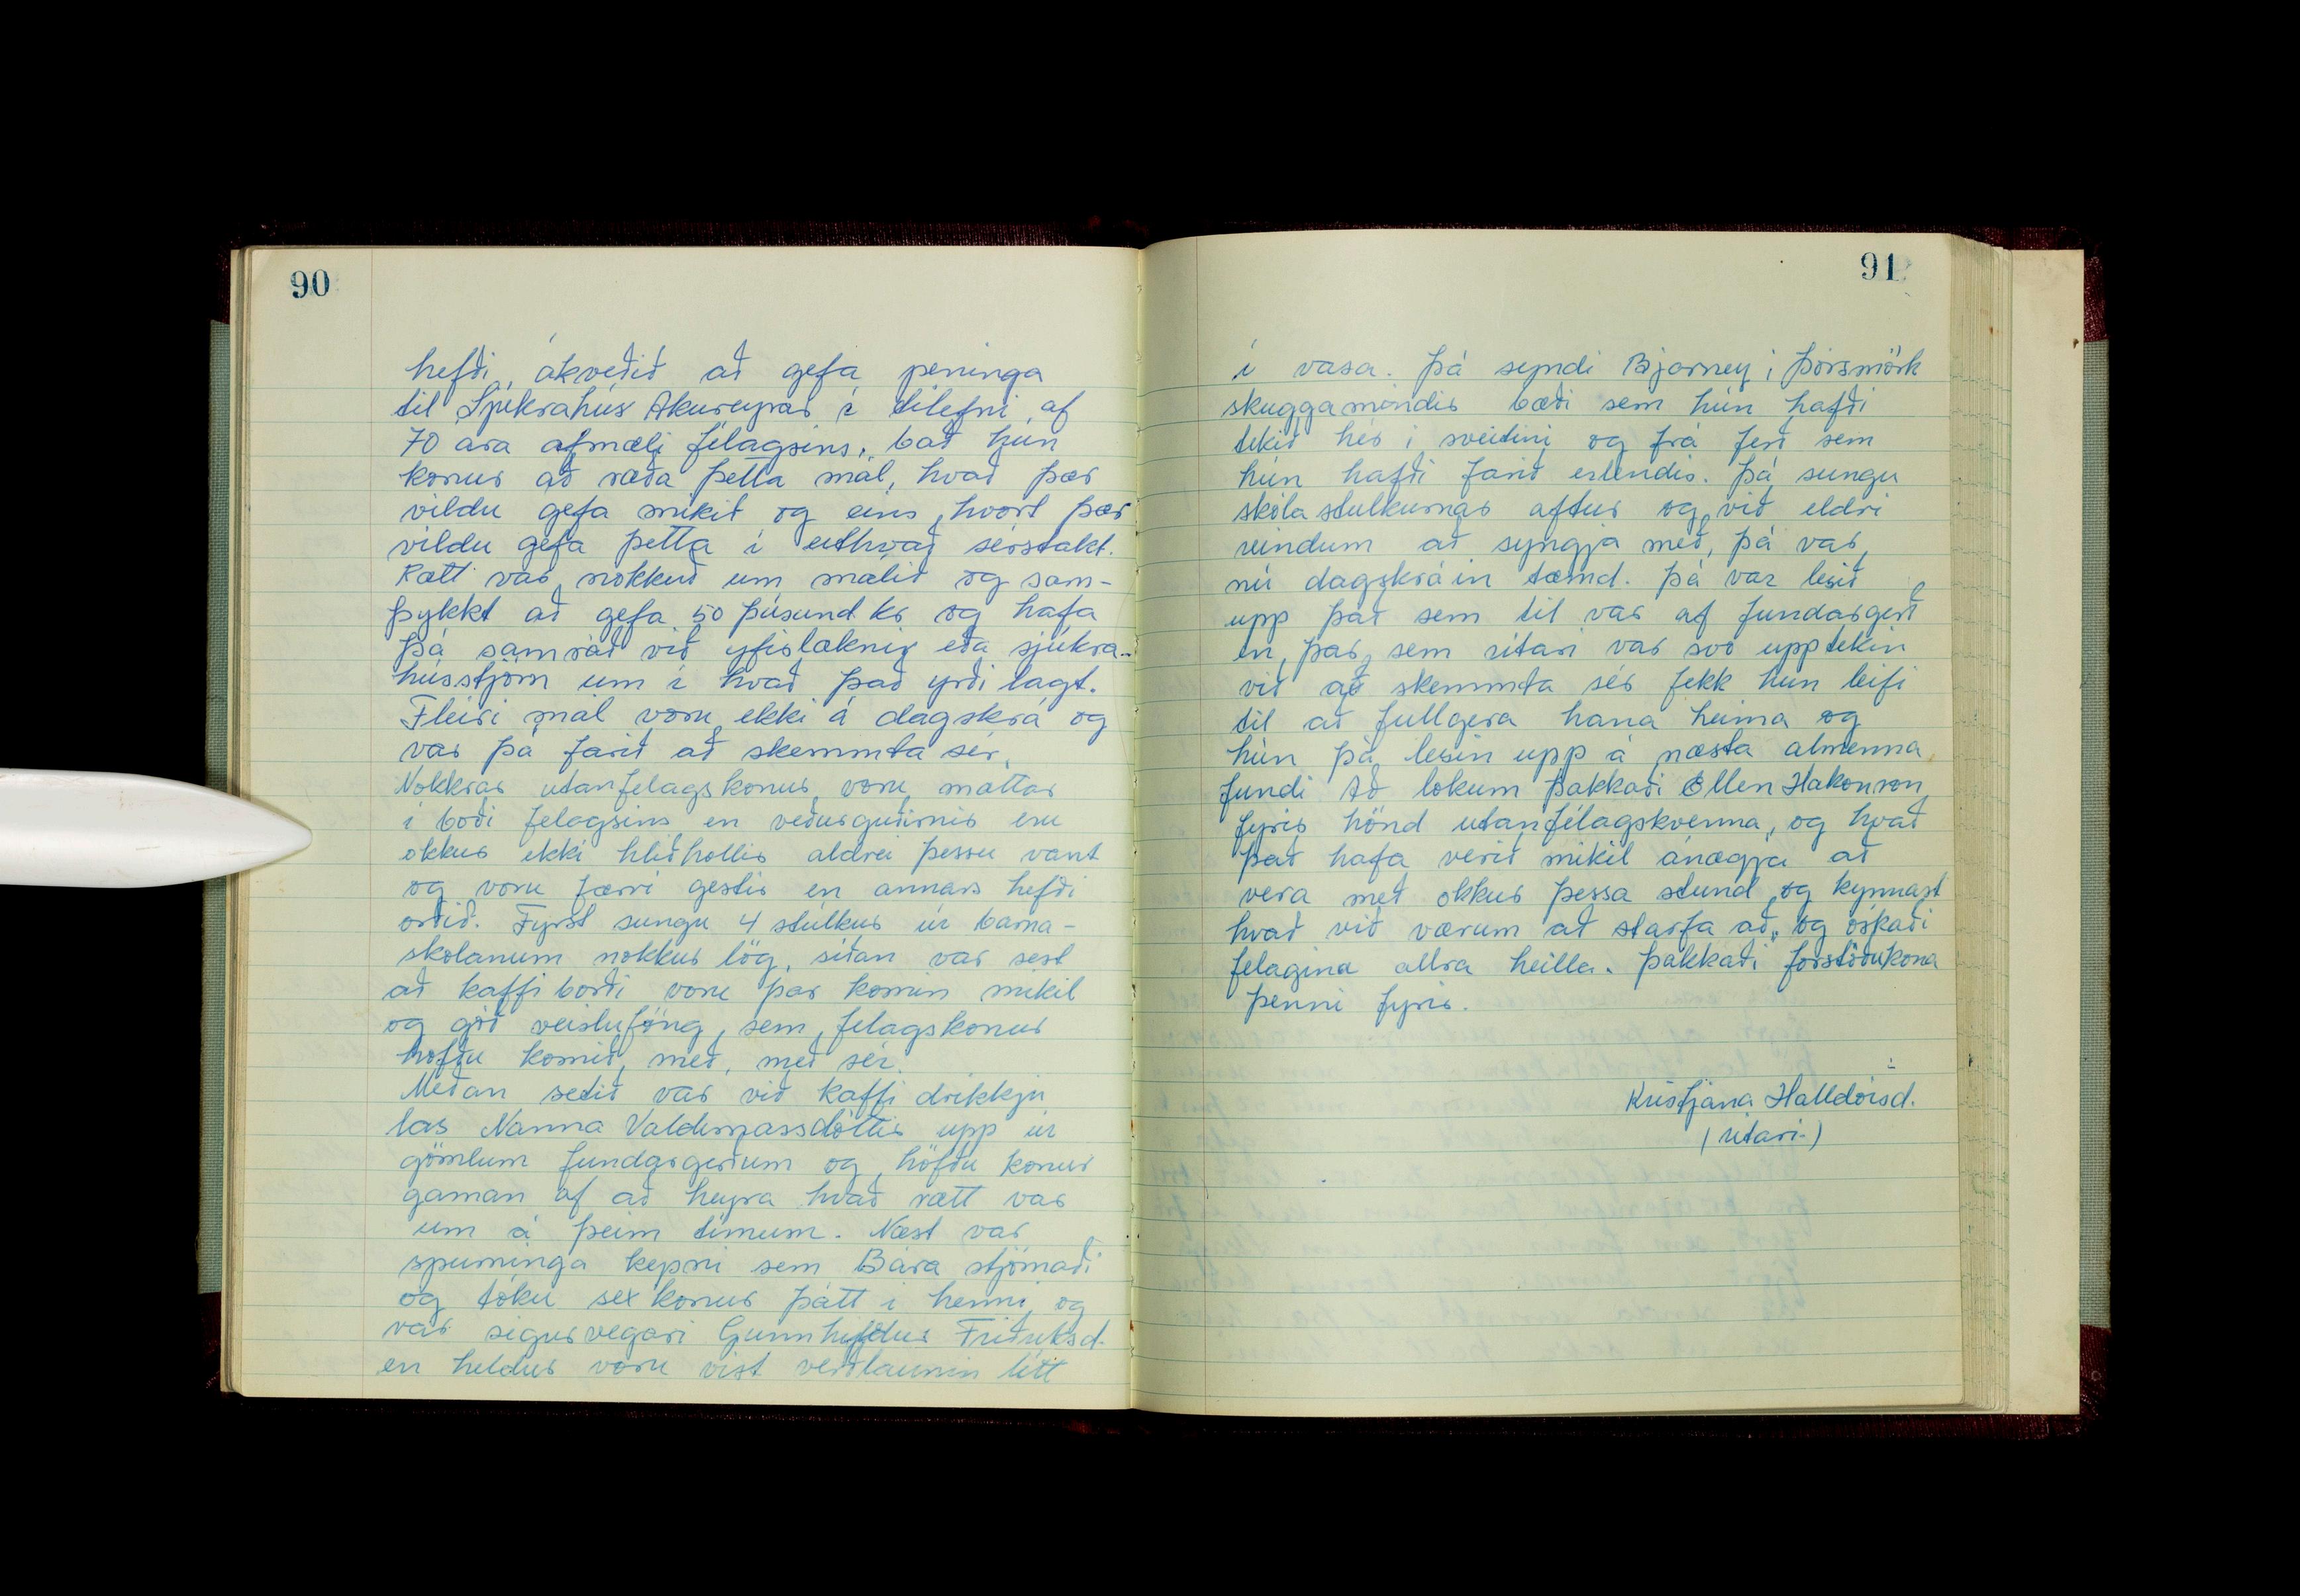 90
hefði ákveðið að gefa peninga
til Sjúkrahús Akureyrar í tilefni af
70 ára afmæli félagsins, bað hún
konur að ræða þetta mál, hvað þær
vildu gefa mikið og eins hvort þær
vildu gefa þetta í eithvað sérstakt.
Rætt var nokkuð um málið og sam-
þykkt að gefa 50 þúsund kr og hafa
þá samráð við yfirlæknir eða sjúkra-
hússtjórn um í hvað það yrði lagt.
Fleiri mál voru ekki á dagskrá og
var þá farið að skemmta sér.
Nokkrar utanfélagskonur voru mættar
í boði félagsins en veðurguðirnir eru
okkur ekki hliðhollir aldrei þessu vant
og voru færri gestir en annars hefði
orðið. Fyrst sungu 4 stúlkur úr barna-
skólanum nokkur lög, síðan var sest
að kaffiborði voru þar komin mikil
og góð veisluföng, sem félagskonur
höfðu komið með, með sér.
Meðan setið var við kaffi drikkju
las Nanna Valdimarsdóttir upp úr
gömlum fundargerðum og höfðu konur
gaman af að heyra hvað rætt var
um á þeim tímum. Næst var
spurninga keppni sem Bára stjórnaði
og tóku sex konur þátt í henni, og
var sigurvegari Gunnhildur Friðriksd.
en heldur voru víst verðlaunin lítt
91
í vasa. Þá sýndi Bjarney í Þórsmörk
skuggamyndir bæði sem hún hafði
tekið hér í sveitinni og frá ferð sem
hún hafði farið erlendis. Þá sungu
skólastúlkurnar aftur og við eldri
reindum að syngja með, þá var
nú dagskráin tæmd. Þá var lesið
upp það sem til var af fundargerð
en, þar sem ritari var svo upptekin
við að skemmta sér fekk hún leifi
til að fullgera hana heima og
hún þá lesin upp á næsta almenna
fundi Að lokum þakkaði Ellen Hakonson
fyrir hönd utanfélagskvenna, og hvað
það hafa verið mikil ánægja að
vera með okkur þessa stund og kynnast
hvað við værum að starfa að, og óskaði
félaginu allra heilla. Þakkaði forstöðukona
þenni fyrir.
Kristjana Halldórsd.
(ritari.)